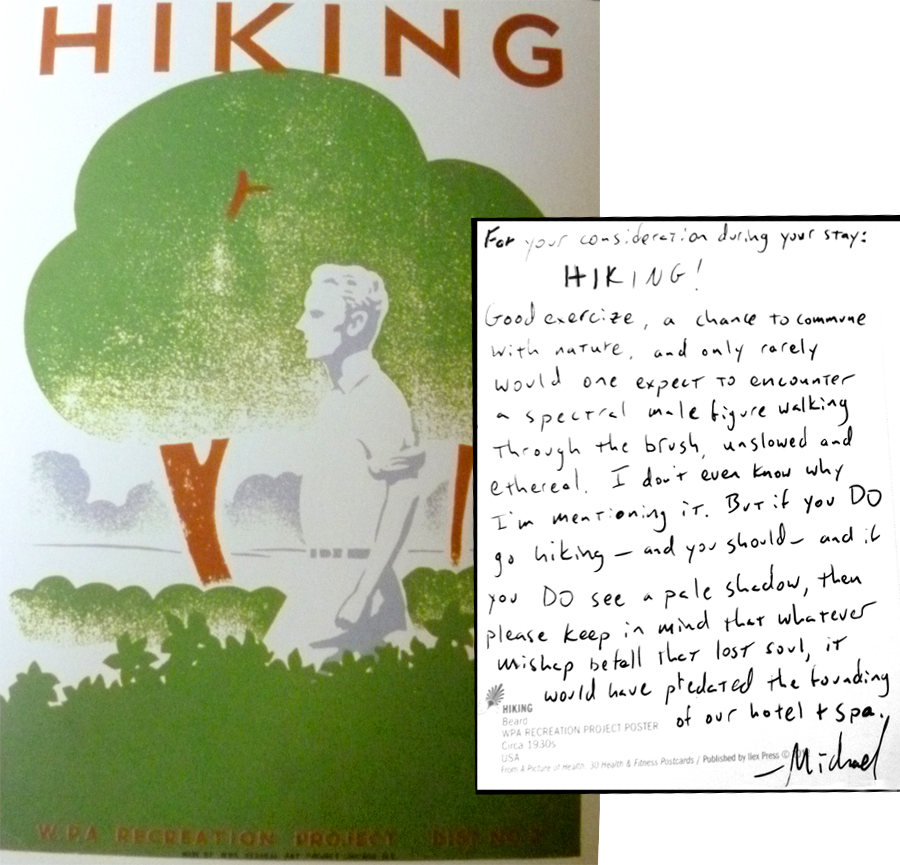 HIKING
W.P.A RECREATION PROJECT DIST. NO. 2
For your consideration during your stay:
HIKING!
Good exercize, a chance to commune
with nature, and only rarely
would one expect to encounter
a spectral male figure walking
through the brush, unslowed and
ethereal. I don't even know why
I'm mentioning it. But if you DO
go hiking – and you should – and if
you DO see a pale shadow, then
please keep in mind that whatever
mishap befell that lost soul, it
would have predated the founding
of our hotel + spa.
– Michael
HIKING
Beard
WPA RECREATION PROJECT POSTER
Circa 1930s
USA
From A Picture of Health: 30 Health & Fitness Postcards / Published by Ilex Press ©